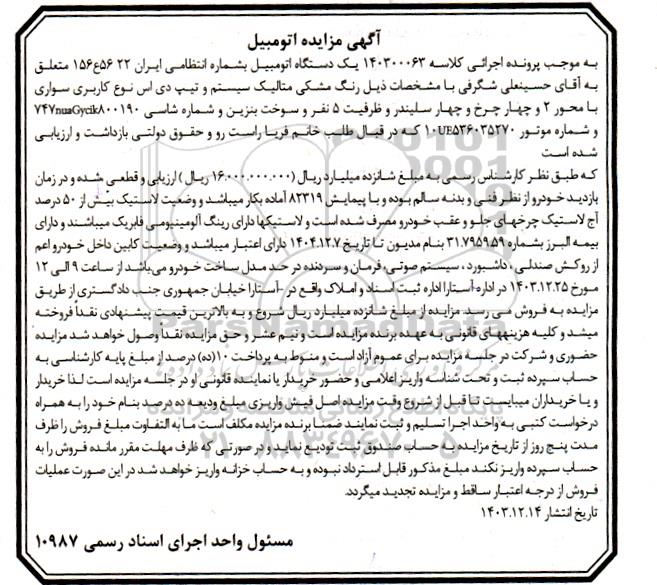 آگهی مزایده اتومبیل
به موجب پرونده اجرائی کلاسه ۱۴۰۳۰۰۰۶۳ یک دستگاه اتومبیل بشماره انتظامی ایران ۲۲ ۵۶ع۱۵۶ متعلق
به آقای حسینعلی شگرفی با مشخصات ذیل رنگ مشکی متالیک سیستم و تیپ دی اس نوع کاربری سواری
با محور ۲ و چهار چرخ و چهار سلیندر و ظرفیت ۵ نفر و سوخت بنزین و شماره شاسی ۷۴۷nuaGycik۸۰۰۱۹۰
و شماره موتور ۱۰UE۵۳۶۰۳۵۲۷۰ که در قبال طلب خانم فریا راست رو و حقوق دولتی بازداشت و ارزیابی
شده است
که طبق نظر کارشناس رسمی به مبلغ شانزده میلیارد ریال (۱۶.۰۰۰.۰۰۰.۰۰۰ ریال) ارزیابی و قطعی شده و در زمان
بازدید خودرو از نظر فنی و بدنه سالم بوده و با پیمایش ۸۲۳۱۹ آماده بکار میباشد و وضعیت لاستیک بیش از ۵۰ درصد
آج لاستیک چرخهای جلو و عقب خودرو مصرف شده است و لاستیکها دارای رینگ آلومینیومی فابریک میباشند و دارای
بیمه البرز بشماره ۳۱.۷۹۵۹۵۹ بنام مدیون تا تاریخ ۱۴۰۴.۱۲.۷ دارای اعتبار میباشد و وضعیت کابین داخل خودرو اعم
از روکش صندلی ، داشبورد ، سیستم صوتی، فرمان و سردنده در حد مدل ساخت خودرو می‌باشد از ساعت ۹ الی ۱۲
مورخ ۱۴۰۳.۱۲.۲۵ در اداره-آستارا اداره ثبت اسناد و املاک واقع در -آستارا خیابان جمهوری جنب دادگستری از طریق
مزایده به فروش می رسد. مزایده از مبلغ شانزده میلیارد ریال شروع و به بالاترین قیمت پیشنهادی نقداً فروخته
میشد و کلیه هزینههای قانونی به عهده برنده مزایده است و نیم عشر و حق مزایده نقداً وصول خواهد شد مزایده
حضوری و شرکت در جلسه مزایده برای عموم آزاد است و منوط به پرداخت ۱۰(ده) درصد از مبلغ پایه کارشناسی به
حساب سپرده ثبت و تحت شناسه واریز اعلامی و حضور خریدار یا نماینده قانونی او در جلسه مزایده است لذا خریدار
و یا خریداران میبایست تا قبل از شروع وقت مزایده اصل فیش واریزی مبلغ ودیعه ده درصد بنام خود را به همراه
درخواست کتبی به واحد اجرا تسلیم و ثبت نمایند ضمنا برنده مزایده مکلف است ما به التفاوت مبلغ فروش را ظرف
مدت پنج روز از تاریخ مزایده به حساب صندوق ثبت تودیع نماید و در صورتی که ظرف مهلت مقرر مانده فروش را به
حساب سپرده واریز نکند مبلغ مذکور قابل استرداد نبوده و به حساب خزانه واریز خواهد شد در این صورت عملیات
فروش از درجه اعتبار ساقط و مزایده تجدید میگردد.
تاریخ انتشار ۱۴۰۳.۱۲.۱۴
مسئول واحد اجرای اسناد رسمی ۱۰۹۸۷
ParsNamadData
۰۲۱-۸۸۳۴۹۶۷۰-۵